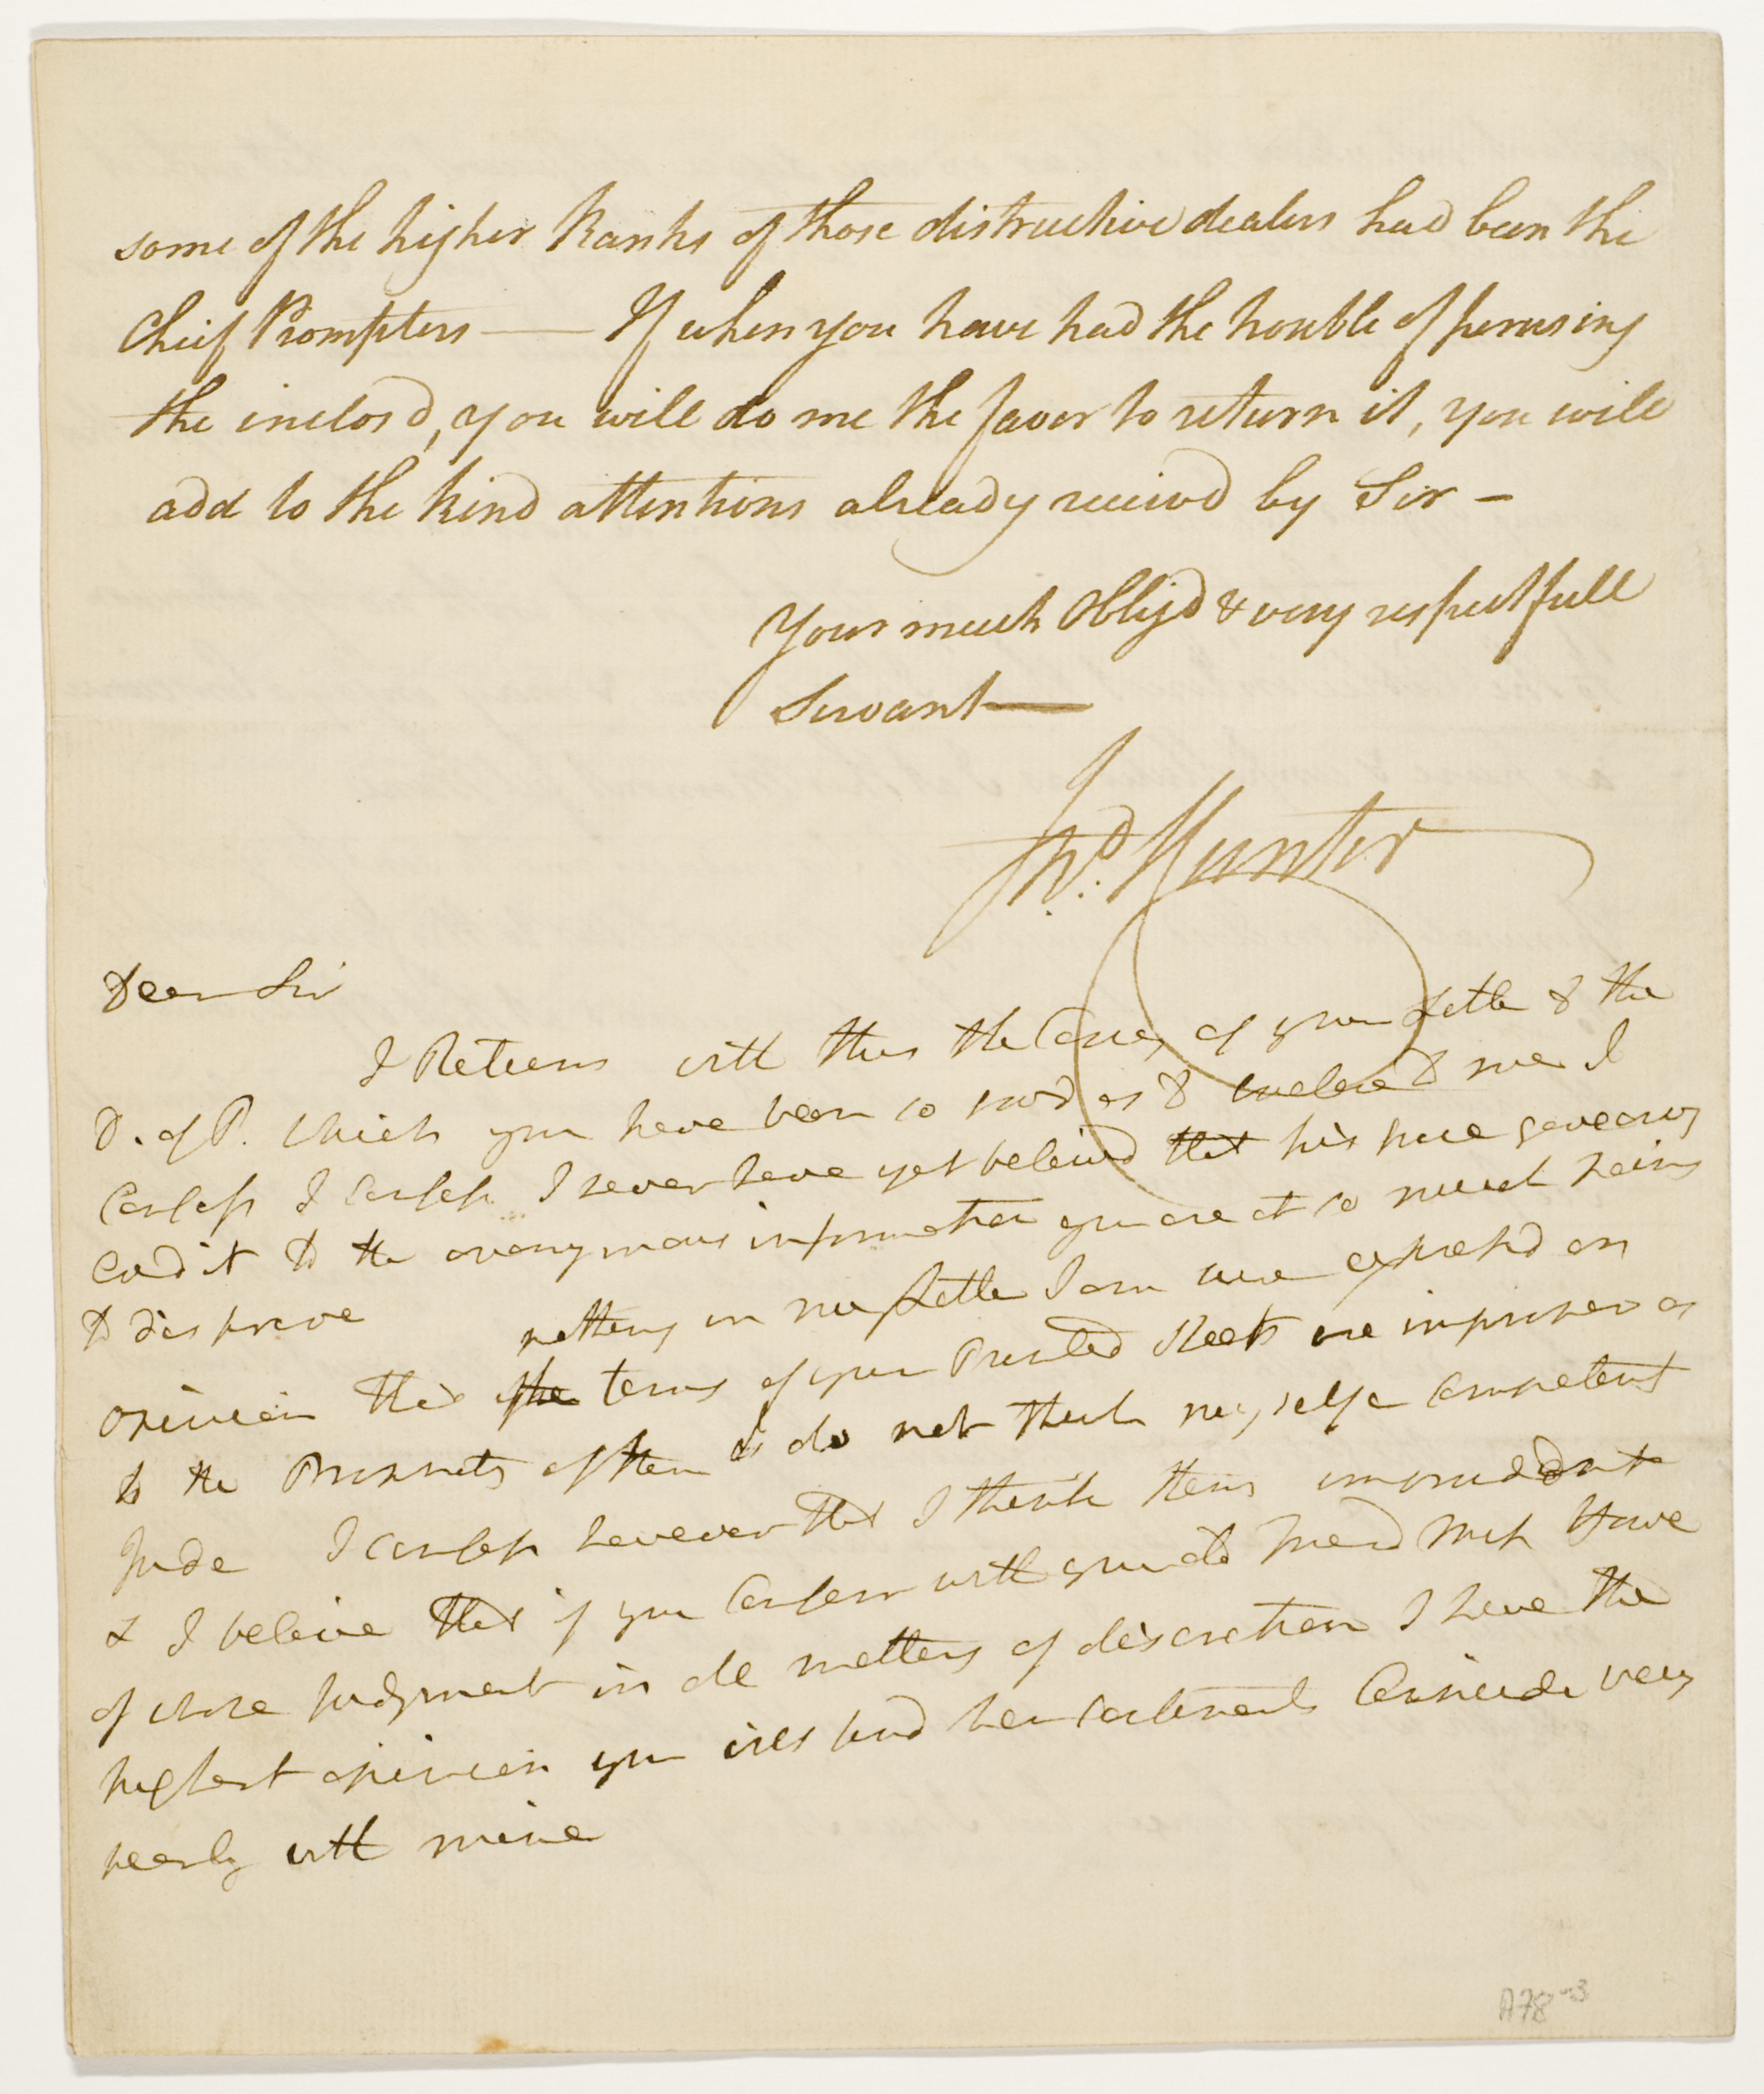 some of the higher Ranks of those distructive dealers had been the
Chief Prompters — If when you have had the trouble of perusing
the inclos'd, you will do me the favor to return it, you will
add to the kind attentions already receiv'd by Sir -
Your much Oblig'd & very respectfull
Servant —
Hunter
Dear Sir
I Return with this the Copy of your Letter to the
D. of P. which you have been so good as to inclose to me I
Confess I confess I never have yet beleived that his Grace gave any
Credit to the anonymous information you are at so much pains
to disprove nothing in my Letter I am sure expressd an
opinion that the terms of your Printed Sheets are improper as
to the Prospects of them I do not think myself a Competent
Judge I confess however that I think them imprudent
& I beleive that if you Confer with your old Friend
of whose Judgment in all matters of discretion I have the
highest opinion you will find her sentiments Coincide very
nearly with mine
A78-3